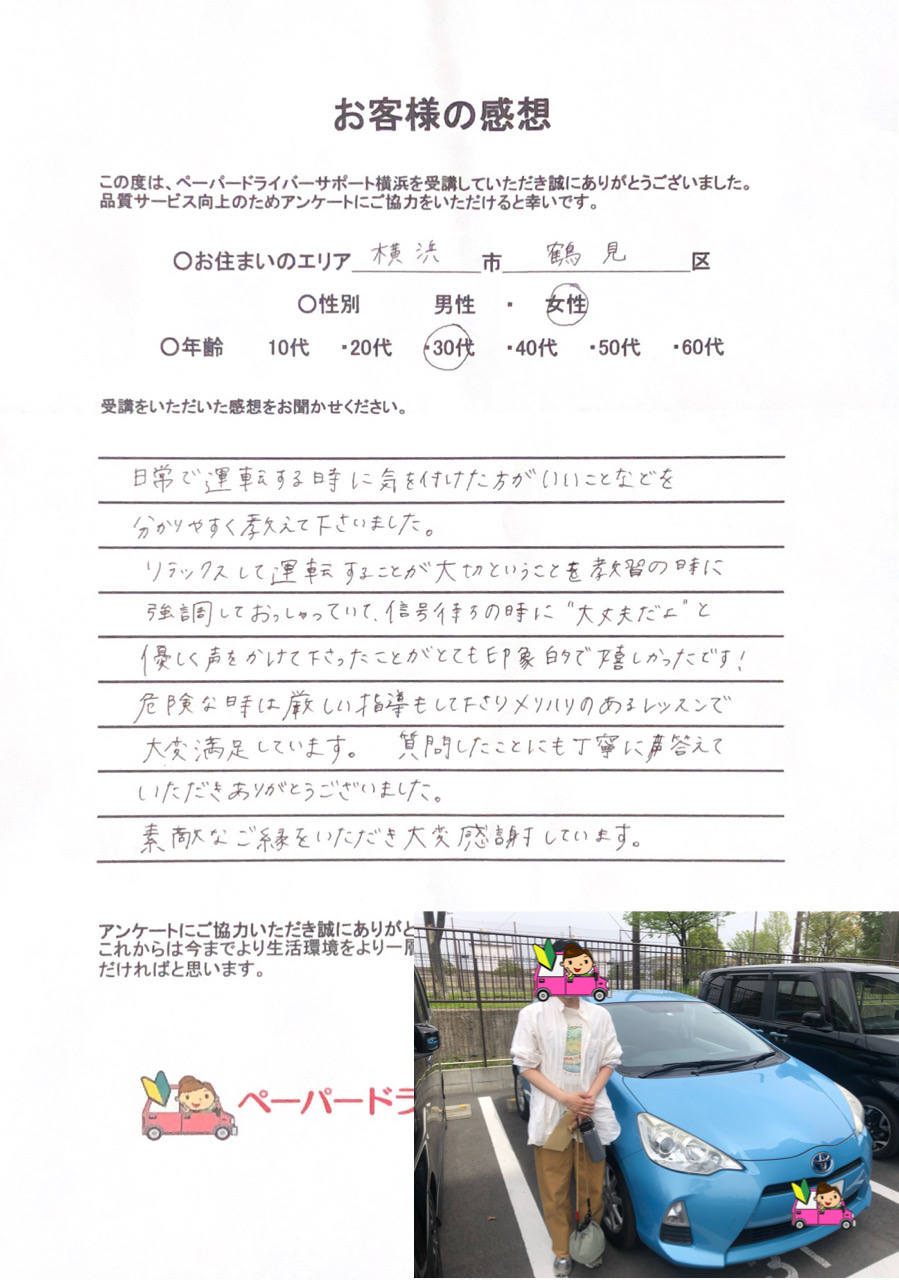 お客様の感想
この度は、ペーパードライバーサポート横浜を受講していただき誠にありがとうございました。
品質サービス向上のためアンケートにご協力をいただけると幸いです。
〇お住まいのエリア 横浜 市 鶴見 区
〇性別 男性 ・ 女性
〇年齢 10代 ・20代 ・30代 ・40代 ・50代 ・60代
受講をいただいた感想をお聞かせください。
日常で運転する時に気を付けた方がいいことなどを
分かりやすく教えて下さいました。
リラックスして運転することが大切ということを教習の時に
強調しておっしゃっていて、信号待ちの時に“大丈夫だよ”と
優しく声をかけて下さったことがとても印象的で嬉しかったです！
危険な時は厳しい指導もして下さりメリハリのあるレッスンで
大変満足しています。 質問したことにも丁寧に答えて
いただきありがとうございました。
素敵なご縁をいただき大変感謝しています。
アンケートにご協力いただき誠にありがと
これからは今までより生活環境をより一層
だければと思います。
ペーパードラ